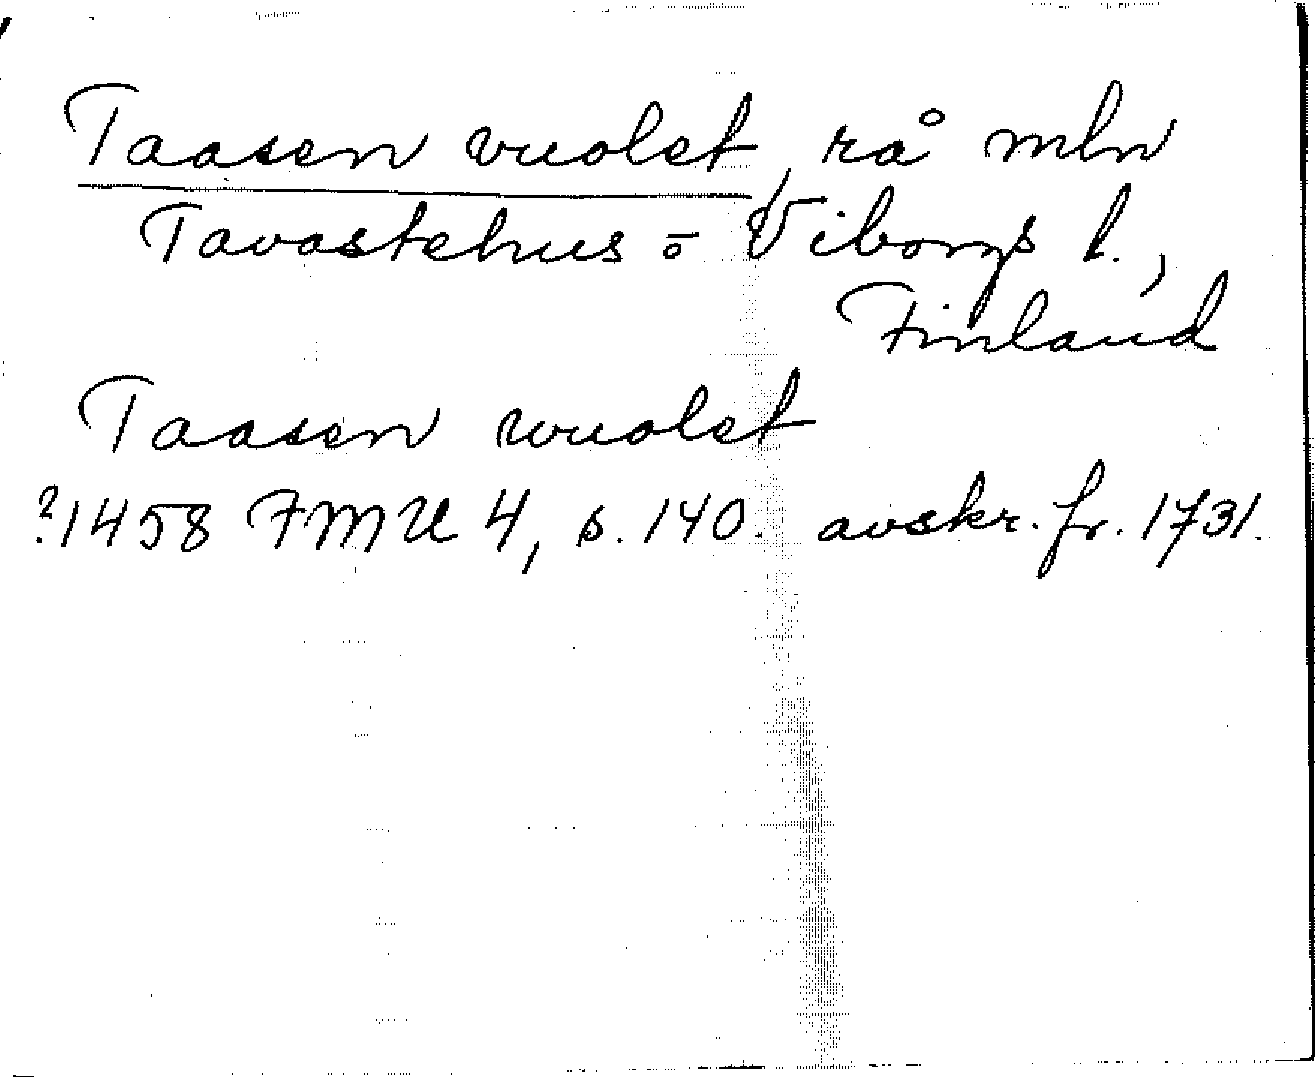 Taasen vuolet, rå mln
Tavastehus o Viborgs l.,
Finland
Taasen wuolet
?1458 FMU 4, s. 140. avskr. fr. 1731.